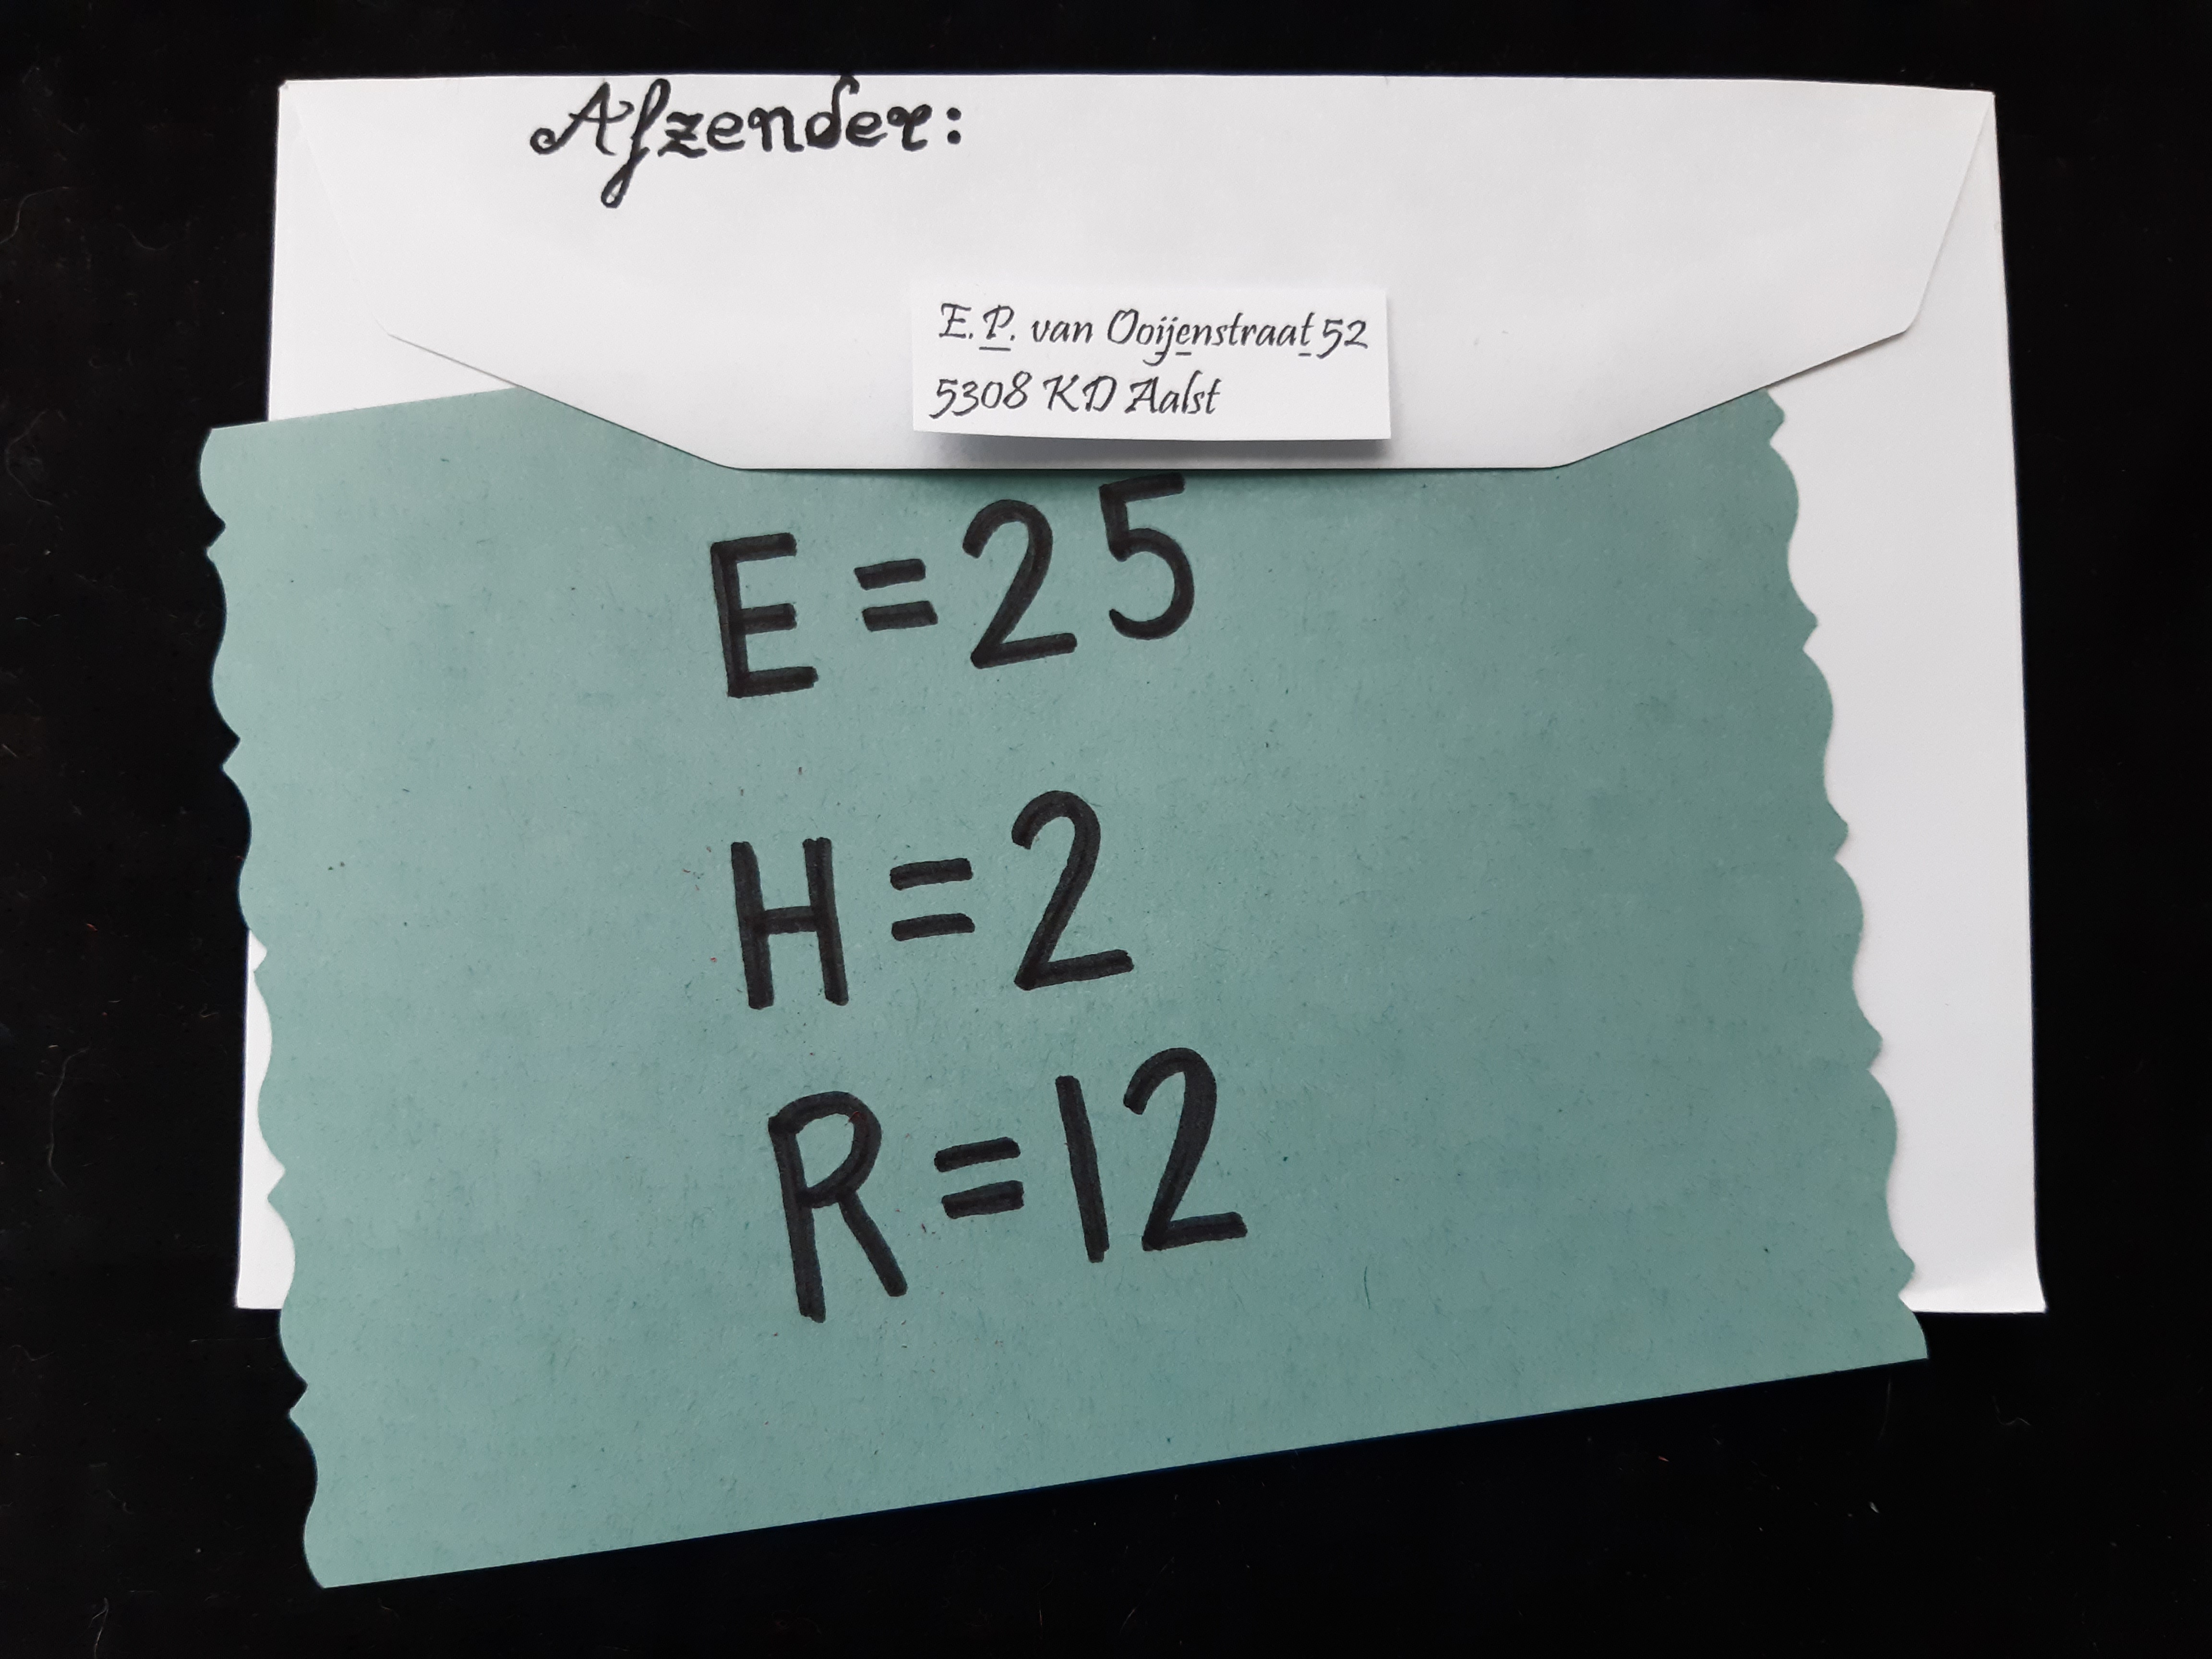 Afzender:
E.P. van Ooijenstraat 52
5308 KD Aalst
E=25
H=2
R=12